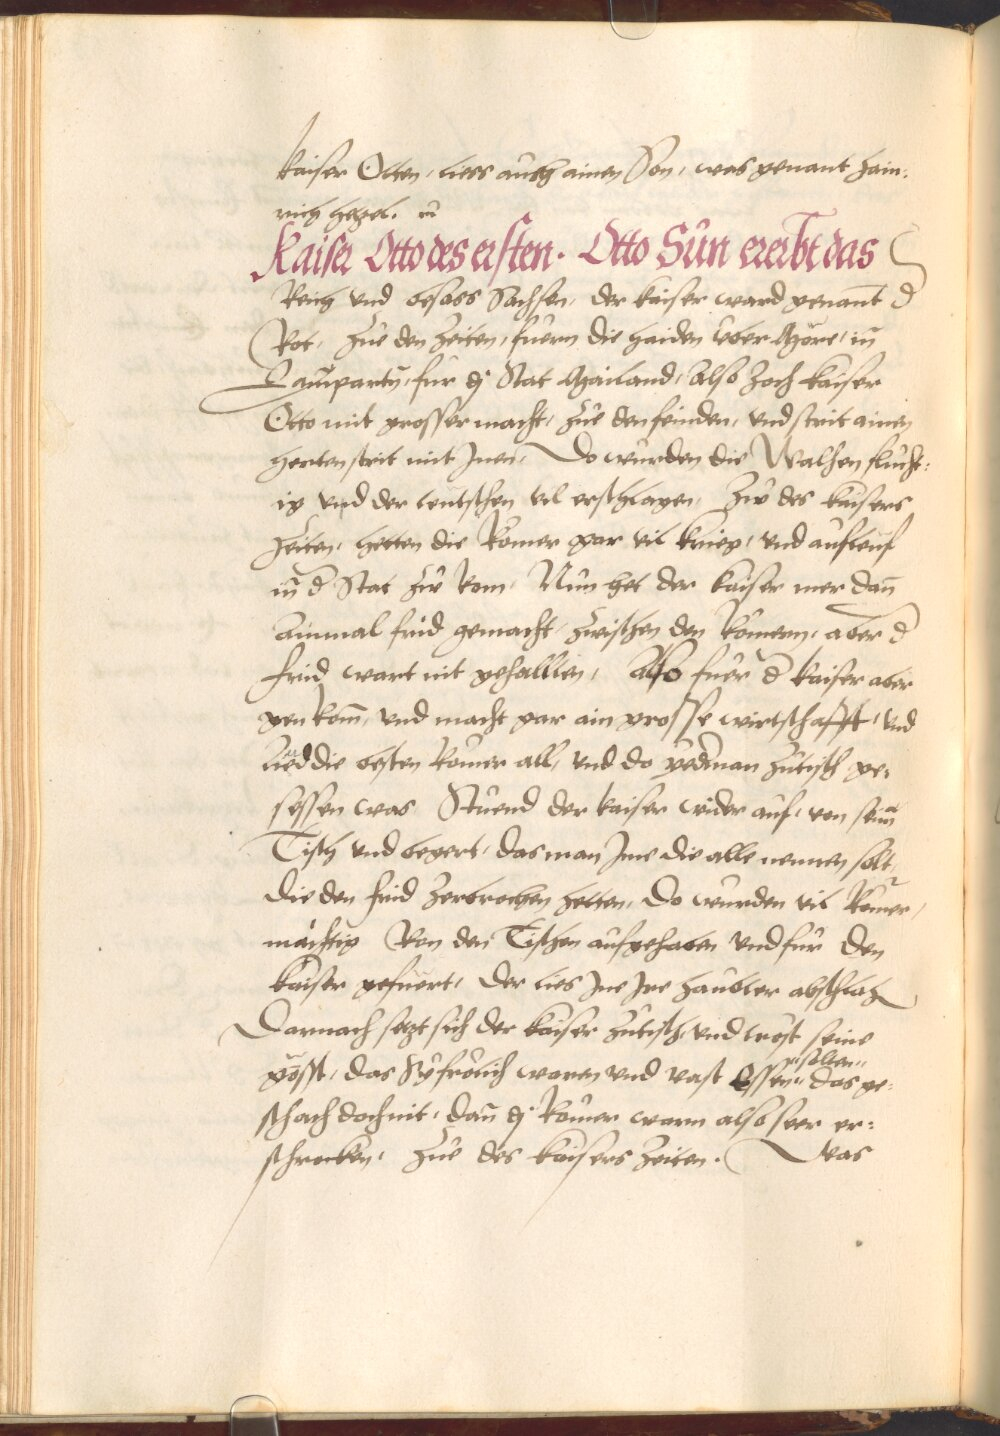 kaiser Otten, liess auch ainen Son, was genant Hain-
rich Hetzel. 
Kaiser Otto des ersten. Otto Sun ererbt das
Reich vnd besass Sachsen, der kaiser ward genant d
Rot, Zue den Zeiten, fuern die haiden vber Möre, in
Lamparty, fur dj Stat Mailand, also zoch kaiser
Otto mit grosser macht, zue den feinden, vnd strit ainen
herten strit mit Jnen, Do wurden die Walhen flucht-
ig vnd der teutschen vil erschlagen, Zw des kaisers
Zeiten, hetten die Romer gar vil krieg, vnd aufleuf
in d Stat zw Rom, Nun het der kaiser mer dan
ainmal frid gemacht, zwischen den Romern, aber d
frid wart nit gehallten, Also fuer d kaiser aber
gen Rom, vnd macht gar ain grosse wirtschafft, vnd
lued die besten Romer all, vnd do yederman zutisch ge-
sessen was Stuend der kaiser wider auf, von seinem
Tisch vnd begert, das man Jme die alle nennen solt,
die den frid zerbrochen hetten, Do wurden vil Romer,
mächtig Von den Tischen aufgehaben vnd fur den
kaiser gefuert, der lies Jne Jre haubter abschlah
Darnach setzt sich der kaiser zutisch, vnd trost seine
gösst, das Sy frölich waren vnd vast Essen solten das ge-
schach doch nit, dan dj Romer warn also seer er-
schrocken, Zue des kaisers Zeiten. Was